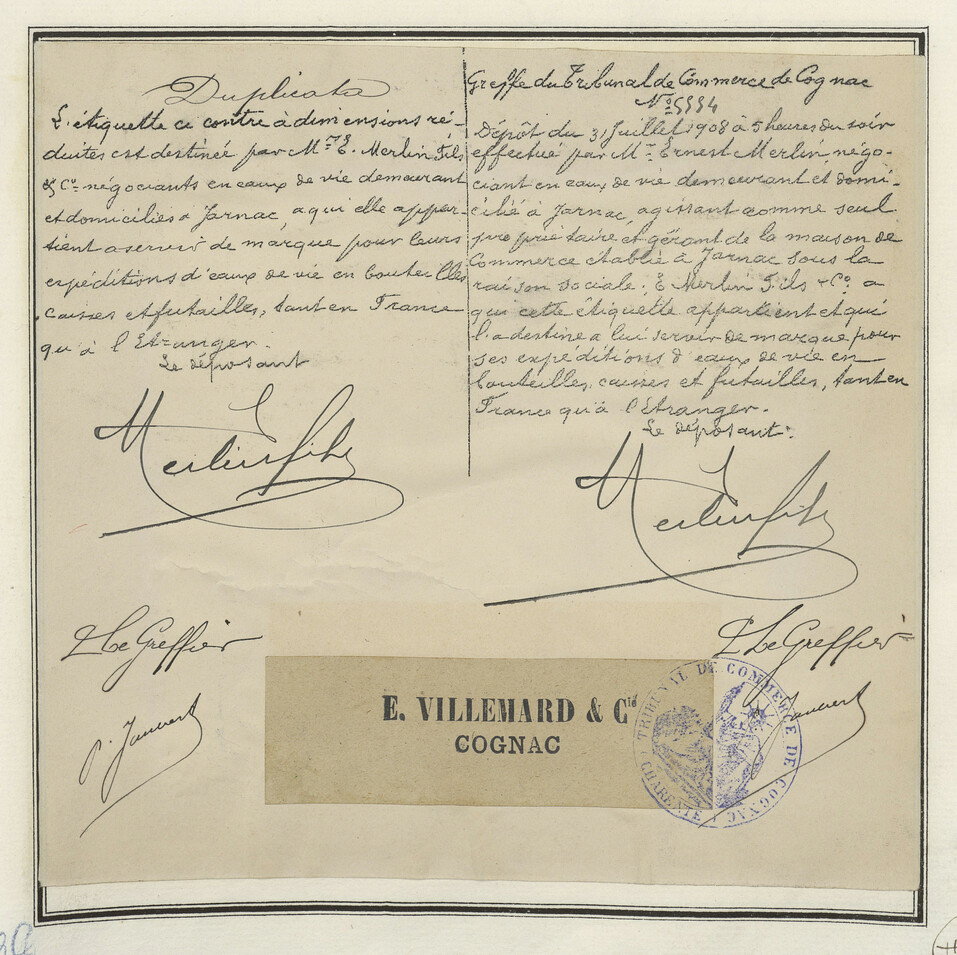 Duplicata
L'étiquette ci contre à dimensions ré-
duites est destinée par Mrs E. Merlin Fils
& Co négociants en eaux de vie demeurant
et domiciliés à Jarnac, a qui elle appar-
tient a servir de marque pour leurs
expéditions d'eaux de vie en bouteilles
caisses et futailles, tant en France
qu'à l'Etranger.
Le déposant
Merlin fils
Le Greffier
Greffe du Tribunal de Commerce de Cognac
No 5554
Dépôt du 31 Juillet 1908 à 5 heures du soir
effectué par Mr Ernest Merlin, négo-
ciant en eaux de vie demeurant et domi-
cilié à Jarnac, agissant comme seul
propriétaire et gérant de la maison de
Commerce établie à Jarnac sous la
raison sociale. E Merlin Fils & Co. a
qui cette étiquette appartient et qui
l'a destine a lui servir de marque pour
ses expéditions d'eaux de vie en
bouteilles, caisses et futailles, tant en
France qu'à l'Etranger.
Le déposant.
Merlin fils
Le Greffier
E. VILLEMARD & Cie
COGNAC
TRIBUNAL DE COMMERCE DE COGNAC
CHARENTE